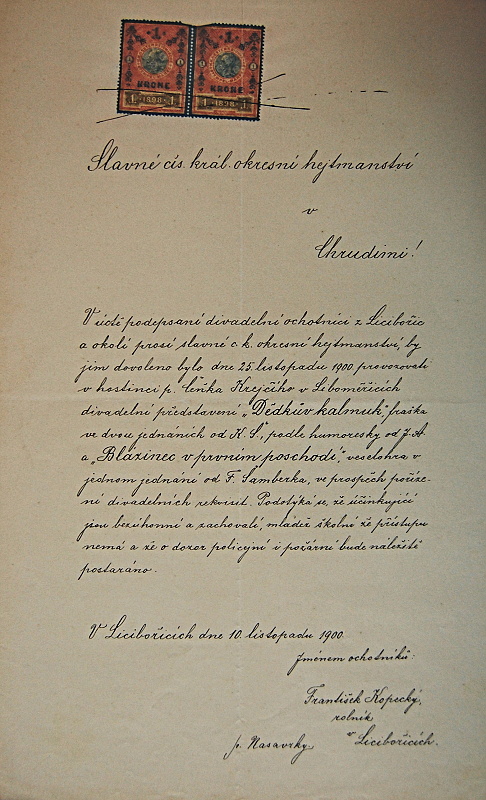 1 1
KRONE KRONE
1 1898 1 1 1898 1
Slavné cís. král. okresní hejtmanství
v
Chrudimi!
V úctě podepsaní divadelní ochotníci z Licibořic
a okolí prosí slavné c. k. okresní hejtmanství, by
jim dovoleno bylo dne 25. listopadu 1900 provozovati
v hostinci p. Čeňka Krejčího v Libomě­řicích
divadelní představení „Dědkův kalmuk", fraška
ve dvou jednáních od K. Š., podle humoresky od J. A
a „Blázinec v prvním poschodí", veselohra v
jednom jednání od F. Šamberka, ve prospěch poříze-
ní divadelních rekvisit. Podotýká se, že účinkující
jsou bezúhonní a zachovalí, mládež školní že přístupu
nemá a že o dozor policejní i požární bude náležitě
postaráno.
V Licibořicích dne 10. listopadu 1900.
Jménem ochotníků:
František Kopecký,
rolník
v Licibořicích.
p. Nasavrky